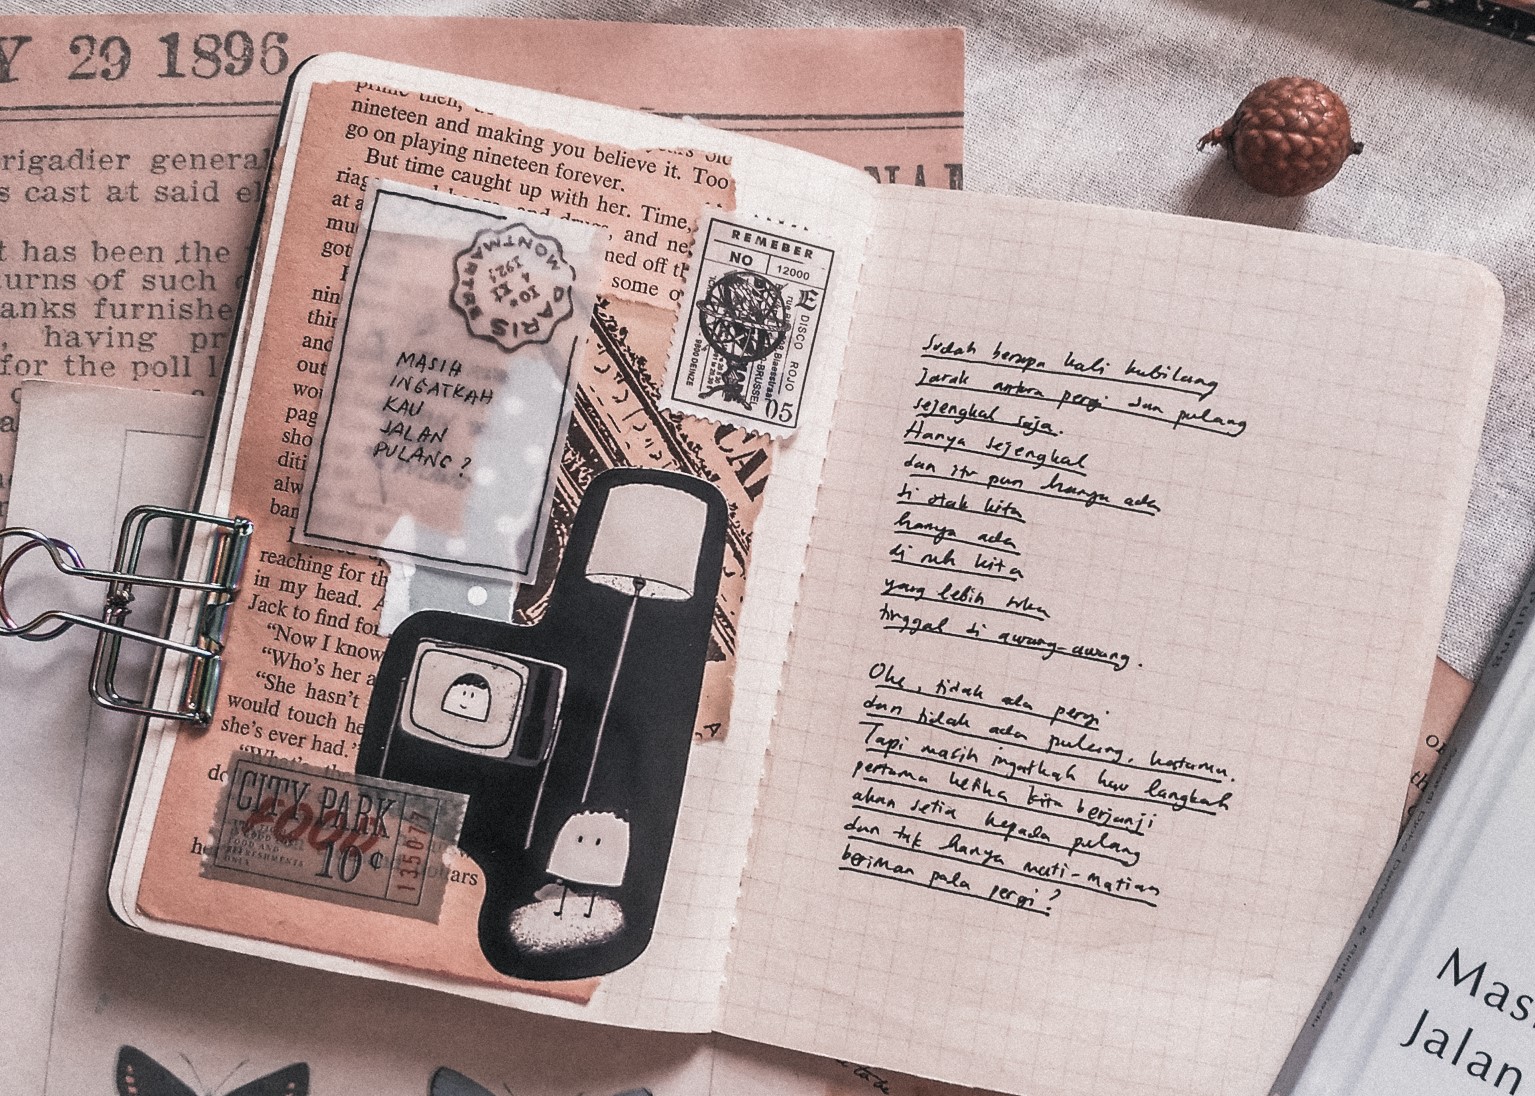 Y 29 1896
rigadier general
s cast at said el
t has been the
turns of such
anks furnishe
, having pr
for the poll l
nineteen and making you believe it. Too
go on playing nineteen forever.
But time caught up with her. Time,
and ne
ned off th
some o
reaching for th
in my head. A
Jack to find for
"Now I know
"Who's her a
"She hasn't
would touch he
she's ever had."
MONTMARTRE
PARIS
MASIH
INGATKAH
KAU
JALAN
PULANG?
REMEBER
NO 12000
DISCO ROJO
9800 DEINZE
BRUSSEL
05
CITY PARK
FOOD
FOOD AND
REFRESHMENTS
ONLY
10¢
135077
Sudah berapa kali kubilang
Jarak antara pergi dan pulang
sejengkal saja.
Hanya sejengkal
dan itu pun hanya ada
di otak kita
hanya ada
di ruh kita
yang lebih suka
tinggal di awang-awang.
Oke, tidak ada pergi
dan tidak ada pulang, katamu.
Tapi masih ingatkah kau langkah
pertama ketika kita berjanji
akan setia kepada pulang
dan tak hanya mati-matian
beriman pada pergi?
Mas
Jalan